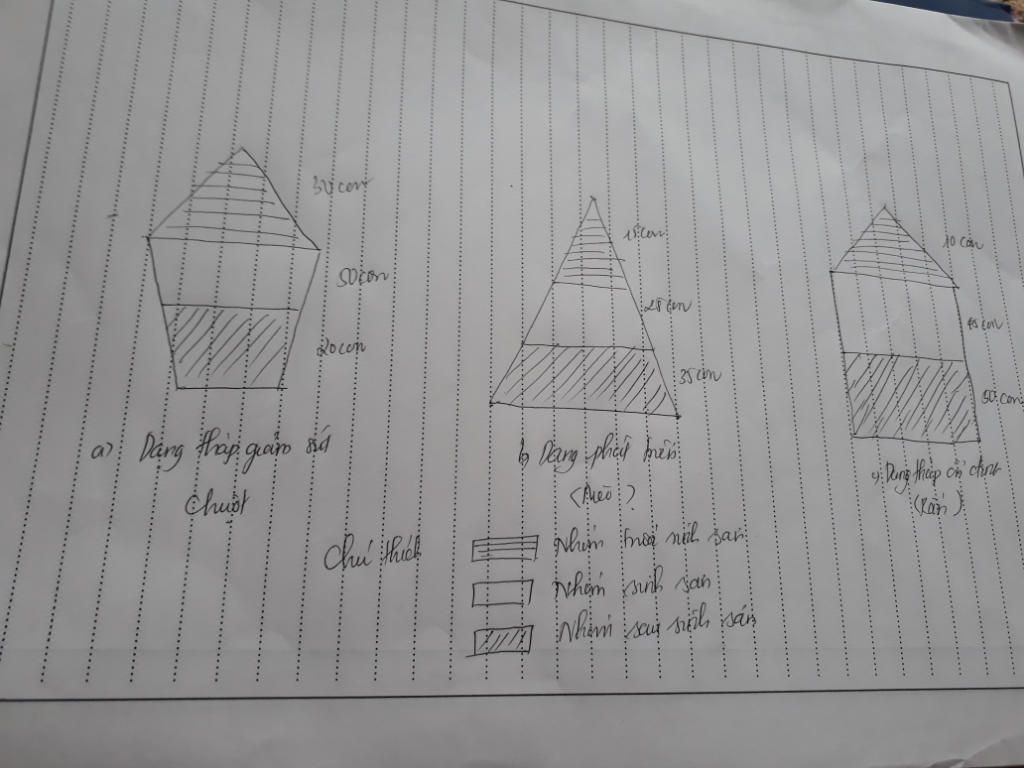 30 con
50 con
20 con
a) Dạng tháp giảm sút
Chuột
15 con
25 con
35 con
b) Dạng phát triển
10 con
50 con
c) Dạng tháp ổn định
Chú thích
Nhóm trước sinh sản
Nhóm sinh sản
Nhóm sau sinh sản